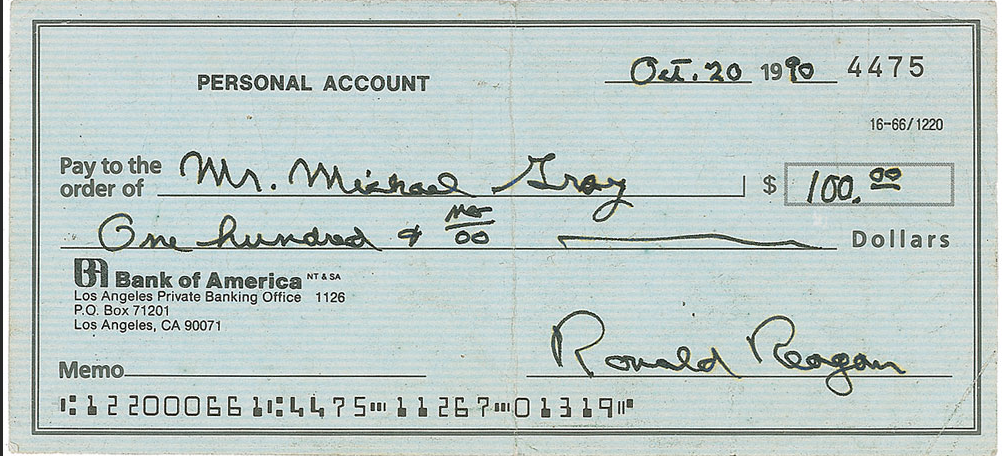 Oct. 20 1990 4475
PERSONAL ACCOUNT
16-66/1220
Pay to the order of Mr. Michael Gray $ 100.00
One hundred & no/00 Dollars
BA Bank of America NT & SA
Los Angeles Private Banking Office 1126
P.O. Box 71201
Los Angeles, CA 90071
Ronald Reagan
Memo
⑆122000661⑆4475⑉11267⑉01319⑈